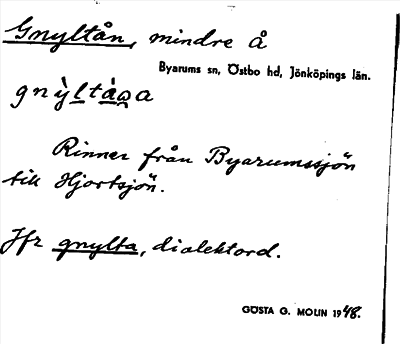 Gnyltån, mindre å
Byarums sn, Östbo hd, Jönköpings län.
gnỳltàꝏa
Rinner från Byarumssjön
till Hjortsjön.
Jfr gnylta, dialektord.
GÖSTA G. MOLIN 1948.